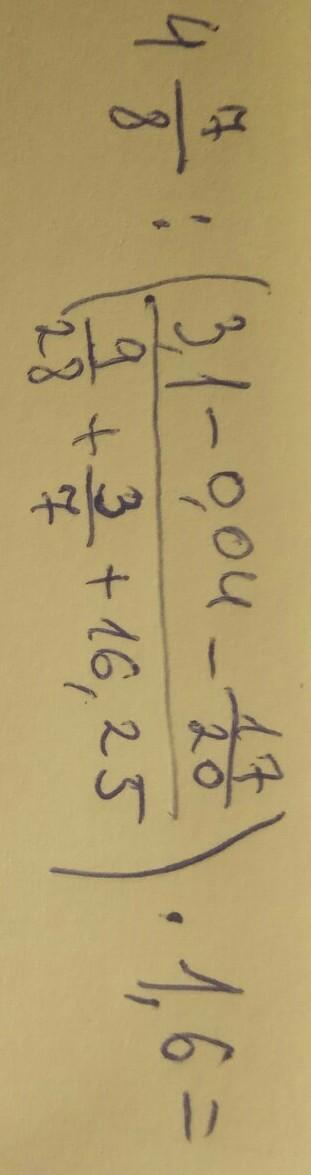 4 7/8 : ( (3,1 - 0,04 - 17/20) / (9/28 + 3/7 + 16,25) ) · 1,6 =